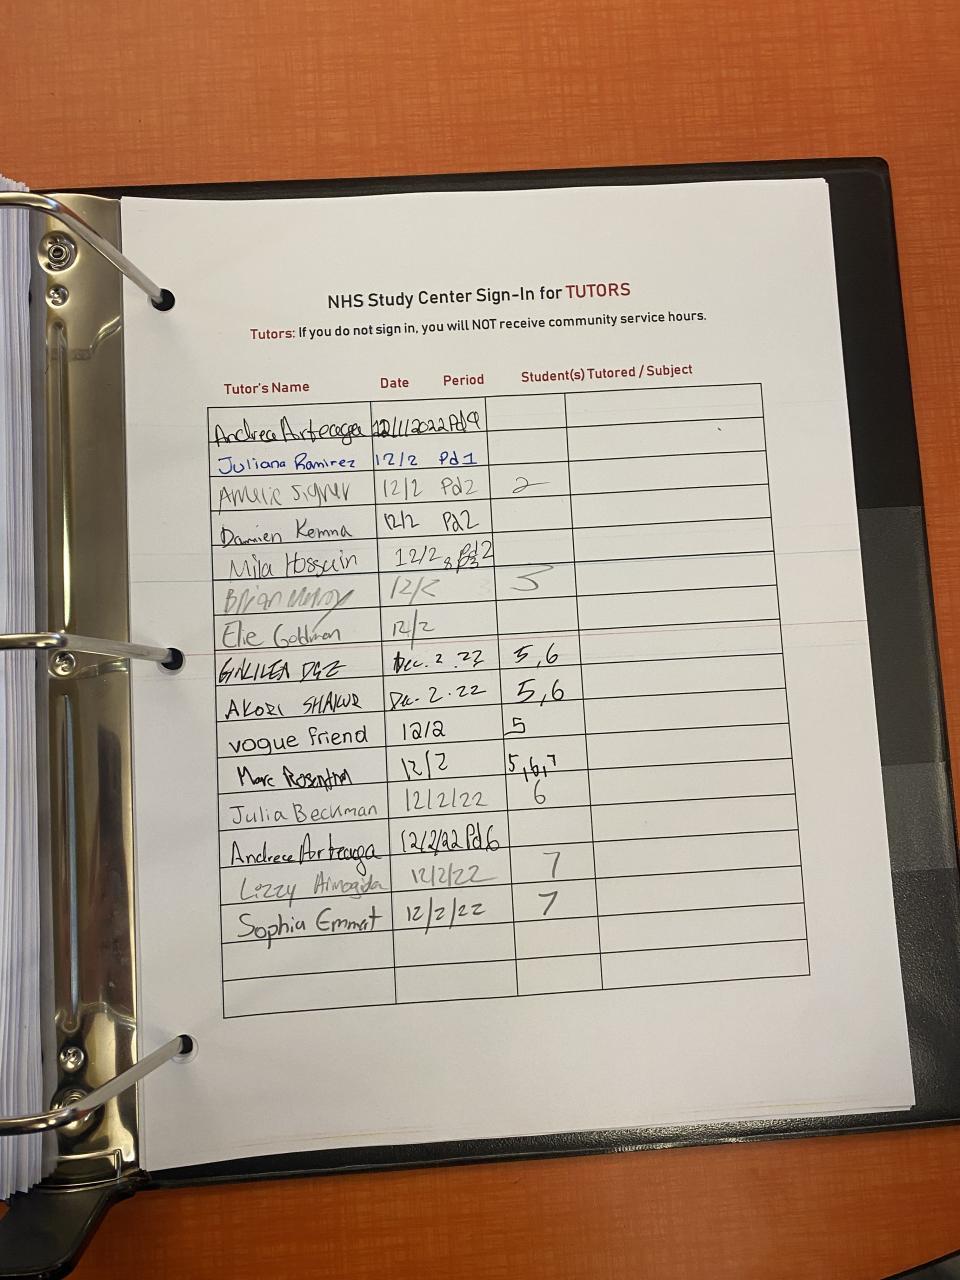 NHS Study Center Sign-In for TUTORS
Tutors: If you do not sign in, you will NOT receive community service hours.
Tutor's Name Date Period Student(s) Tutored / Subject
Andreea Arteaga 12/1/2022 Pd9
Juliana Ramirez 12/2 Pd1
Amelie Signer 12/2 Pd2 2
Damien Kemna 12/2 Pd2
Mila Hossain 12/2 Pd2
Brian 12/2 3
Elie Goldman 12/2
GALILEA DGZ Dec. 2. 22 5,6
AKORI SHAKUR Dec. 2. 22 5,6
vogue friend 12/2 5
Marc Rosenthal 12/2 5,6,7
Julia Beckman 12/2/22 6
Andreea Arteaga 12/2/22 Pd6
Lizzy 12/2/22 7
Sophia Emmat 12/2/22 7